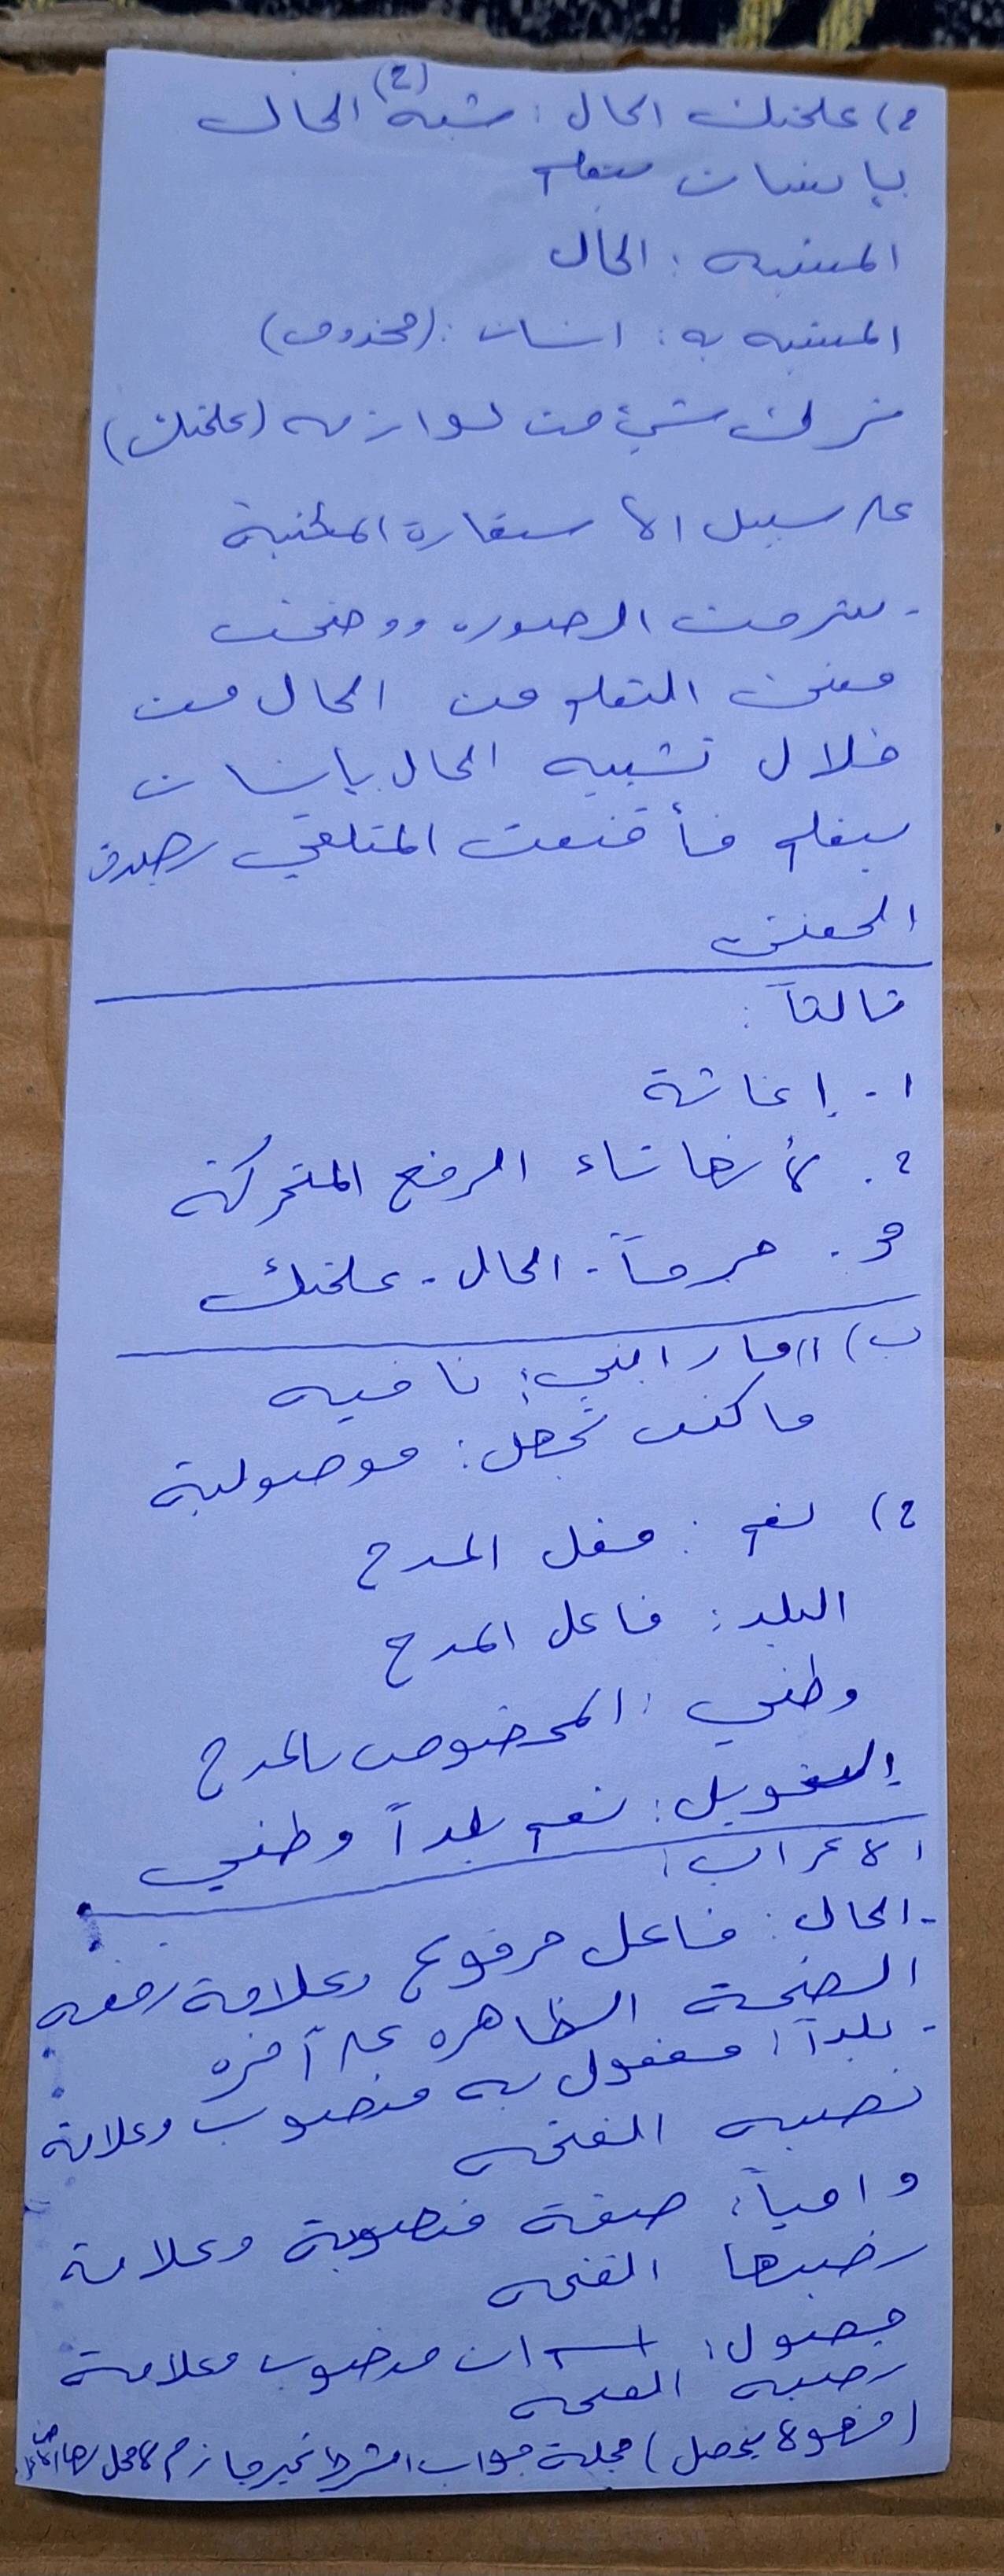 (2)
٢) علمتك الحال : شبه الحال
بإنسان يتعلم
المشبه : الحال
المشبه به : انسان : (محذوف)
ترك شيء من لوازمه (علمتك)
على سبيل الاستعارة المكنية
- شرحت الصوره ووضحت
معنى التعلم من الحال من
خلال تشبيه الحال بإنسان
يعلم فأقنعت المتلقي بصدق
المعنى
ثالثاً :
١. إغاثة
٢. لأنها تاء الرفع المتحركة
٣. حرفاً - الحال - علمتك
ب) ١) ما رابني : نافيه
ما كنت تجهل : موصولية
٢) نعم : فعل المدح
البلد : فاعل المدح
وطني : المخصوص بالمدح
التحويل : نعم بلداً وطني
الاعراب :
- الحال : فاعل مرفوع وعلامة رفعه
الضمة الظاهره على آخره
- بلداً : مفعول به منصوب وعلامة
نصبه الفتحه
وامياً : صفة منصوبة وعلامة
نصبها الفتحه
اسم ان منصوب وعلامة
نصبه الفتحه
(فهو لا يحصل) جملة جواب الشرط غير جازم لا محل لها